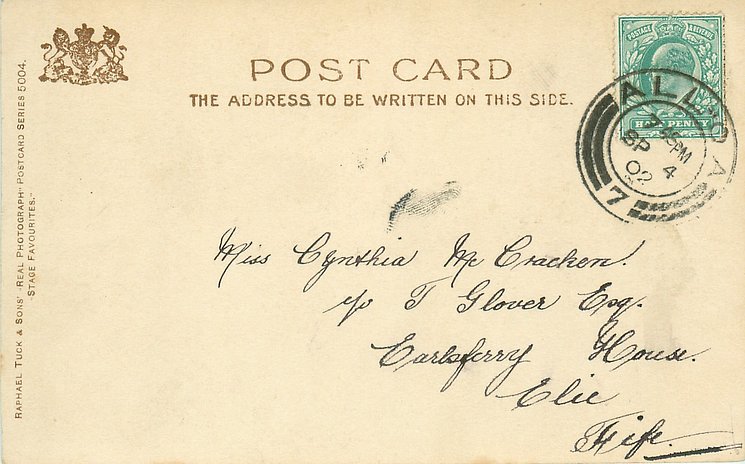 POST CARD
THE ADDRESS TO BE WRITTEN ON THIS SIDE.
POSTAGE REVENUE
HALF PENNY
ALLOA
7 45PM
SP 4
02
7
Miss Cynthia Mc Cracken.
c/o T Glover Esq.
Earlsferry House.
Elie
Fife.
RAPHAEL TUCK & SONS' "REAL PHOTOGRAPH" POSTCARD SERIES 5004.
"STAGE FAVOURITES."